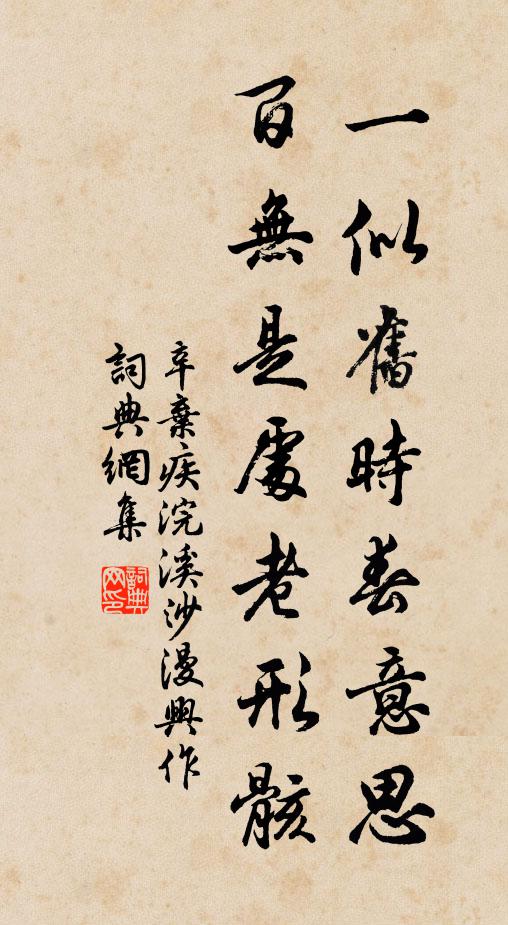 一似舊時春意思
百無是處老形骸
辛棄疾浣溪沙漫興作
詞典網集
詞典網印